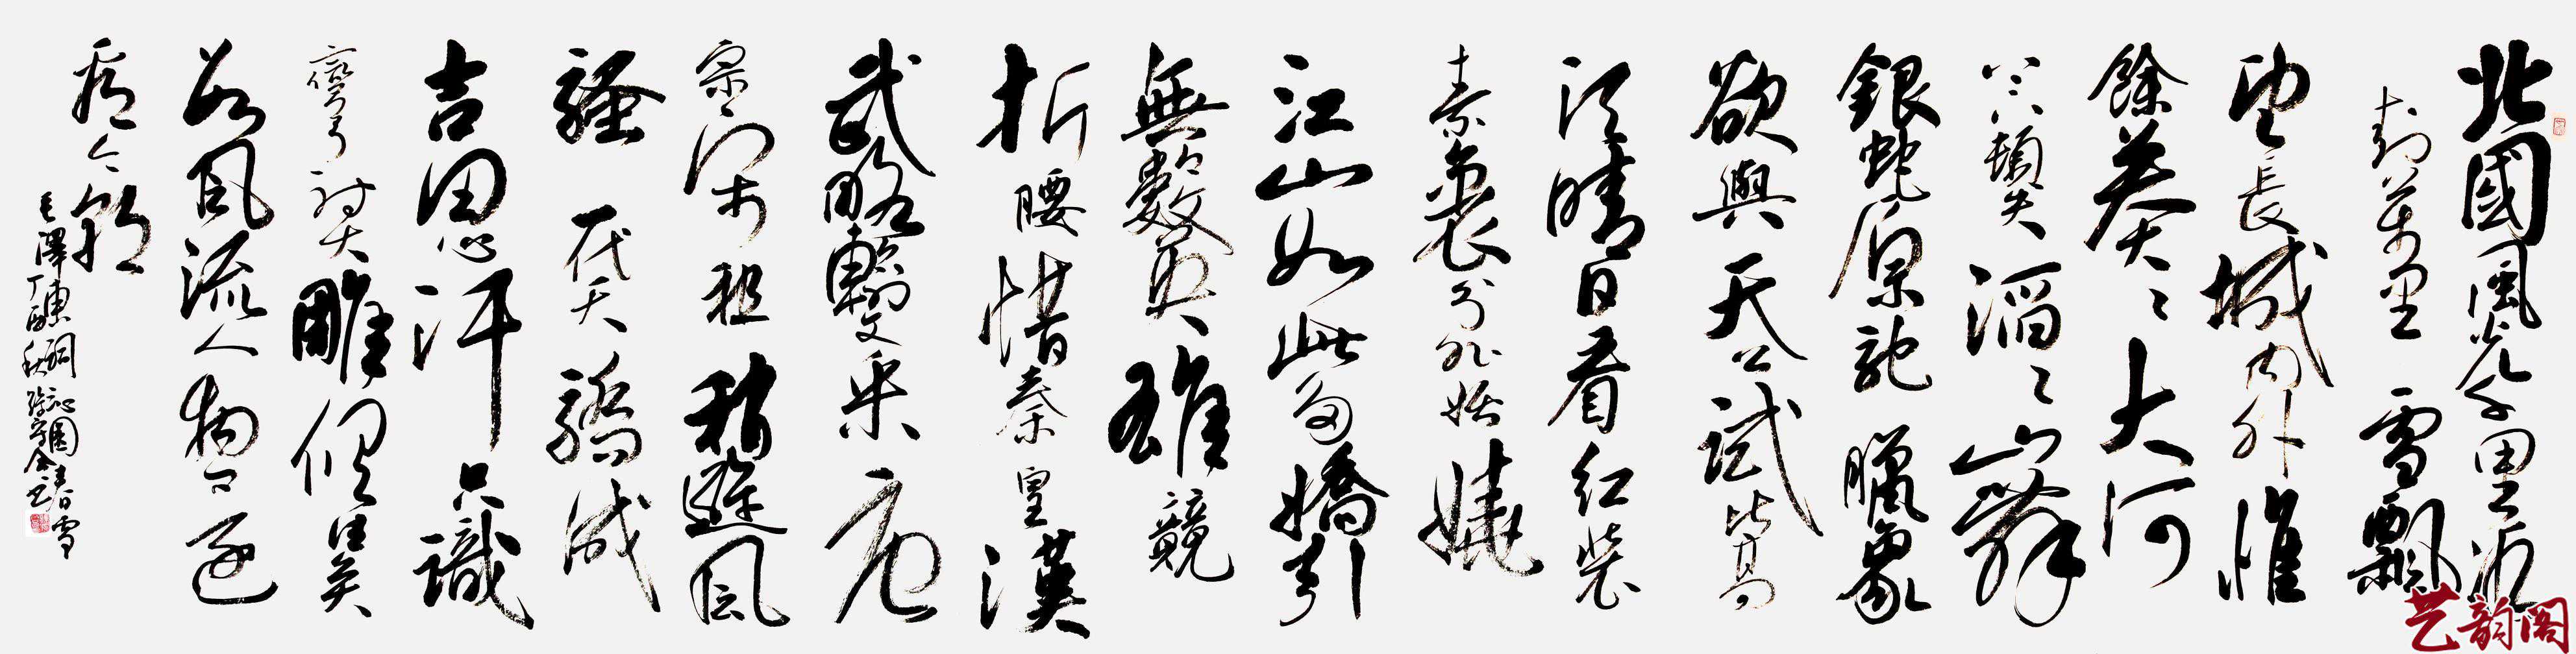 北國風光千里冰
封萬里雪飄
望長城內外惟
餘莽〻大河
上下頓失滔〻山舞
銀蛇原馳臘象
欲與天公試比高
須晴日看紅裝
素裹分外妖嬈
江山如此多嬌引
無數英雄競
折腰惜秦皇漢
武略輸文采唐
宗宋祖稍遜風
騷一代天驕成
吉思汗只識
彎弓射大雕俱往矣
數風流人物還
看今朝
毛澤東詞沁園春雪
丁酉秋
艺韵阁